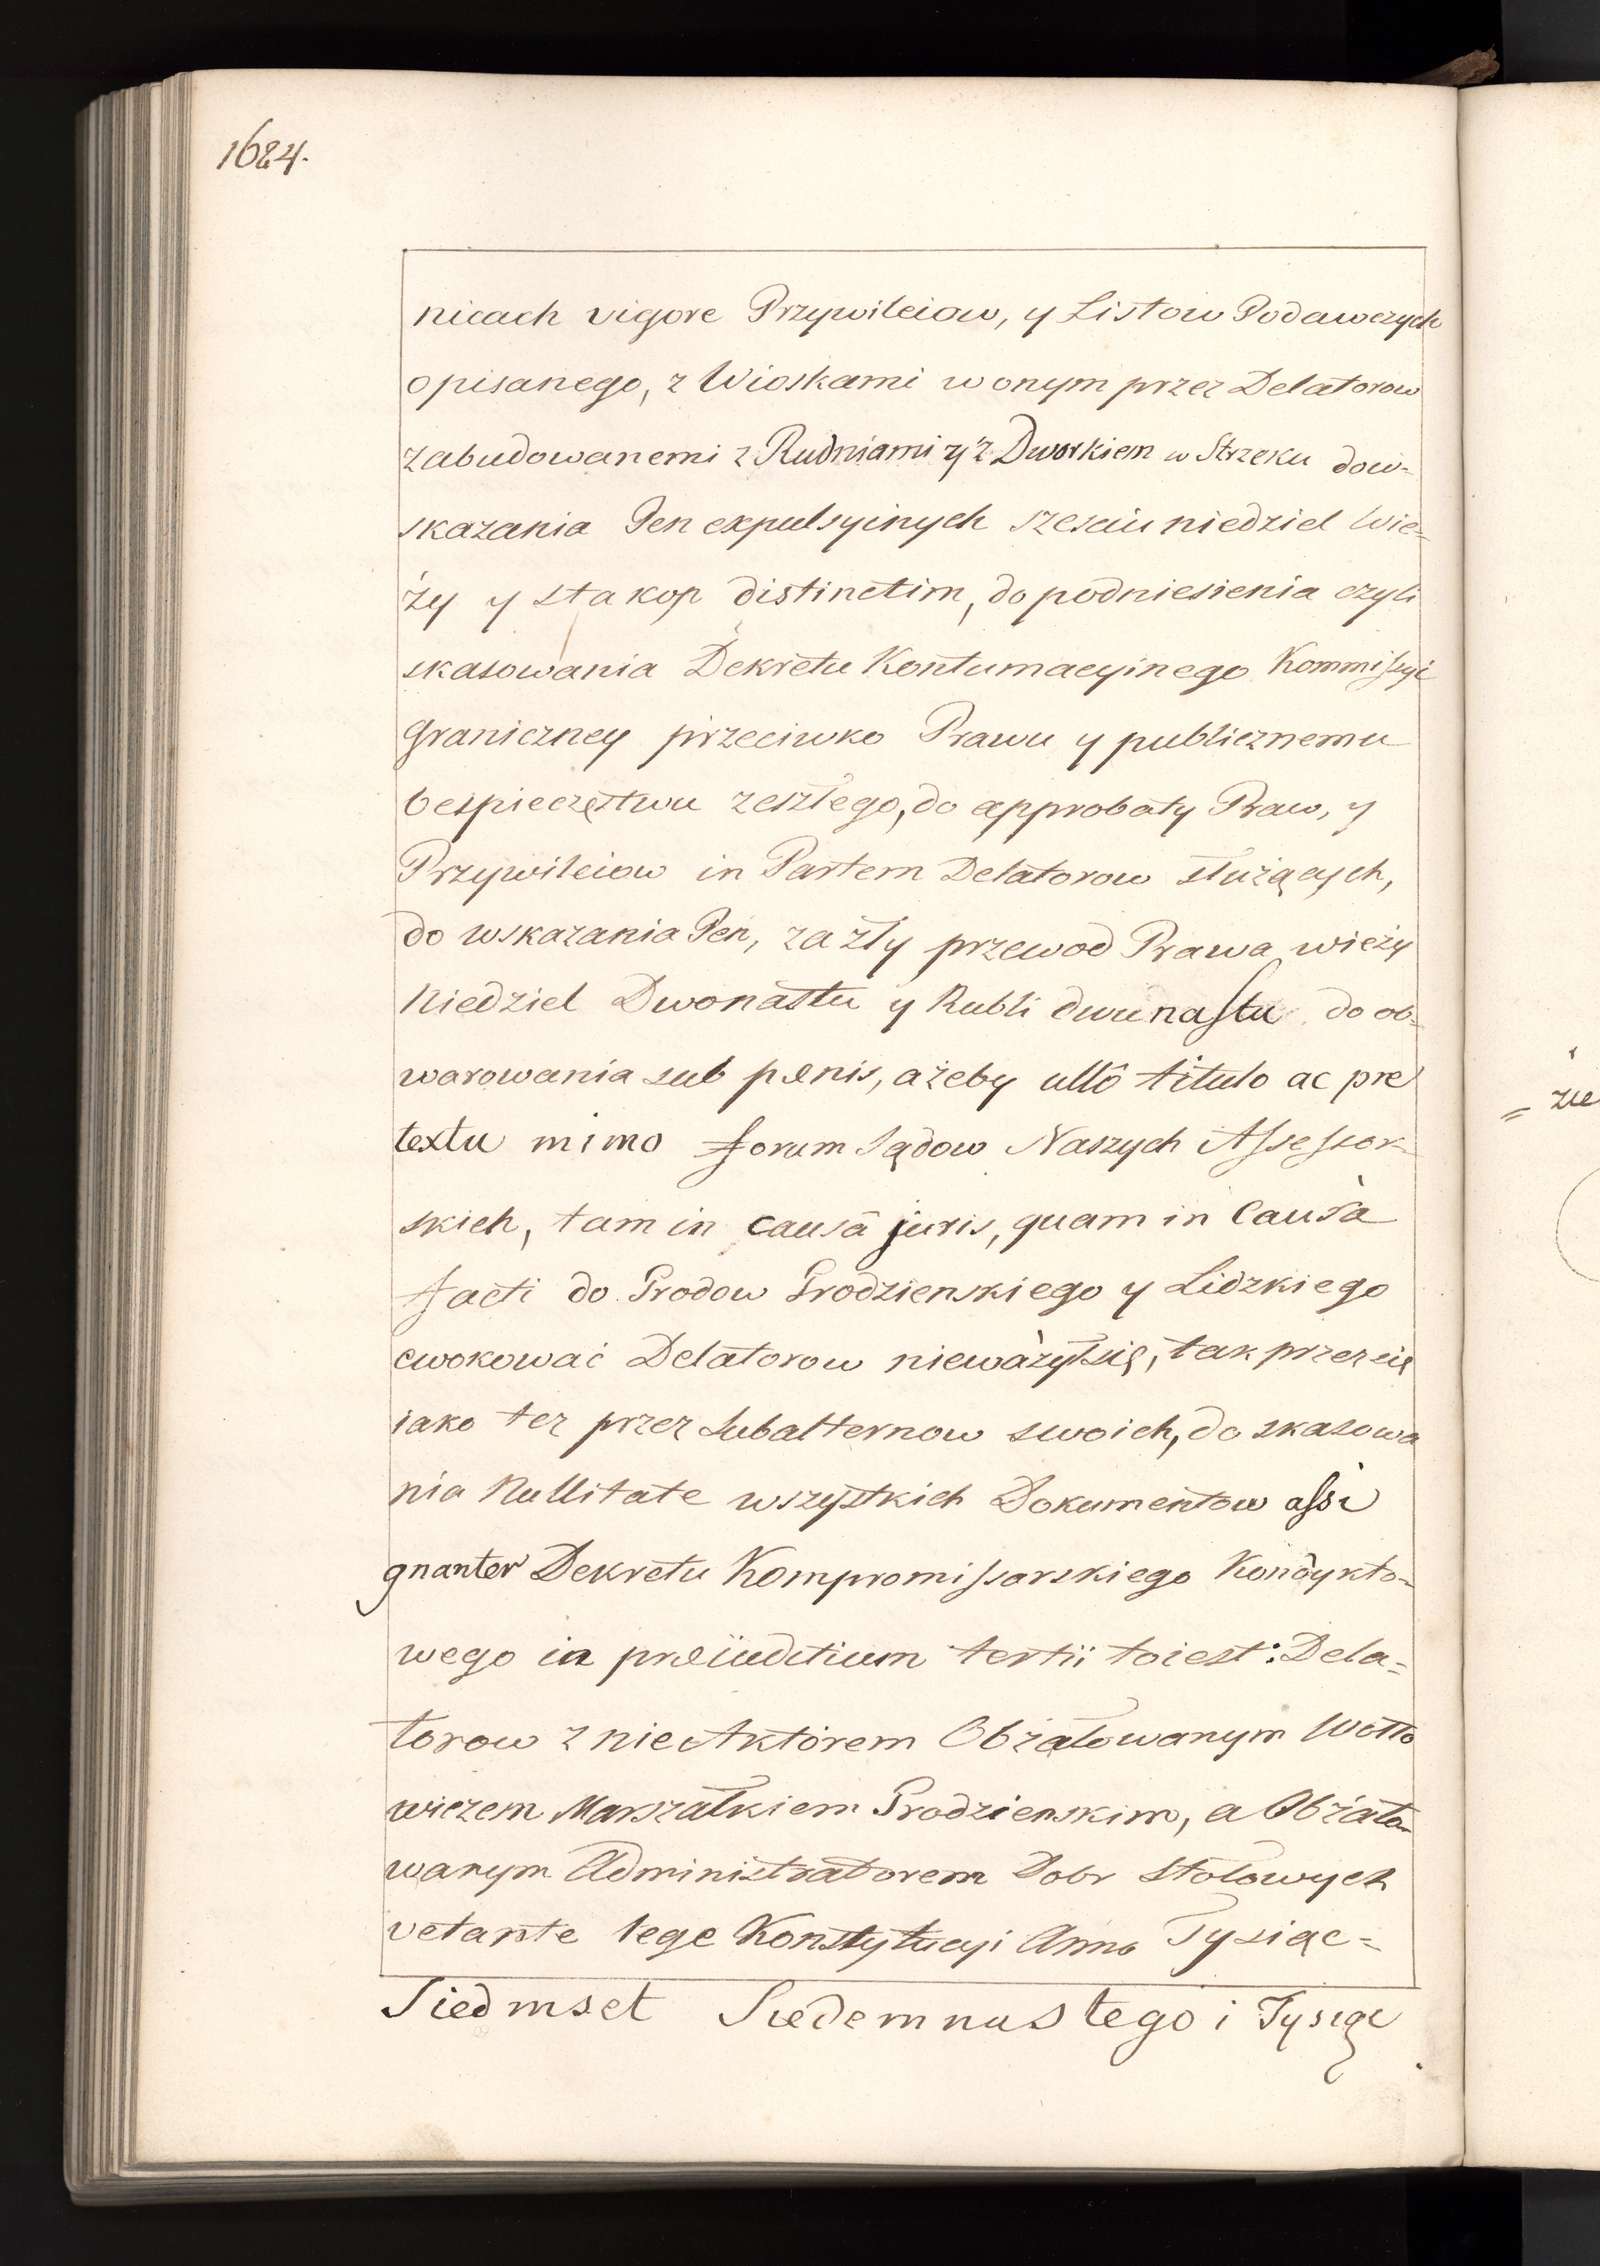 1684.
nicach vigore Przywileiow, y Listow Podawczych
opisanego, z Wioskami w onym przez Delatorow
zabudowanemi z Rudniami y z Dworkiem w Strzeku dow-
skazania Pen expulsyinych szesciu niedziel Wie-
ży y sta kop distinctim, do podniesienia czyli
skasowania Dekretu Kontumacyinego Kommissyi
Graniczney przeciwko Prawu y publicznemu
bespieczęstwu zeszłego, do approbaty Praw, y
Przywileiow in Partem Delatorow służących,
do wskazania Pen, za zły przewod Prawa wieży
Niedziel Dwonastu y Rubli dwunastu do ob-
warowania sub pænis, ażeby ullô titulo ac pre
textu mimo forum Sądow Naszych Assessor-
skich, tam in causâ juris, quam in Causà
facti do Grodow Grodzienskiego y Lidzkiego
ewokować Delatorow nieważył się, tak przez się
iako tez przez Subalternow swoich, do skasowa
nia Nullitate wszystkich Dokumentow assi
gnanter Dekretu Kompromissarskiego Kondykto-
wego in præiuditium tertii toiest: Dela-
torow z nie Aktorem Obżałowanym Wołło
wiczem Marszałkiem Grodzienskim, a Obżało-
wanym Administratorem Dobr Stołowych
vetante lege Konstytucyi Anno Tysiąc-
Siedmset Siedemnastego i Tysiąc
= zie